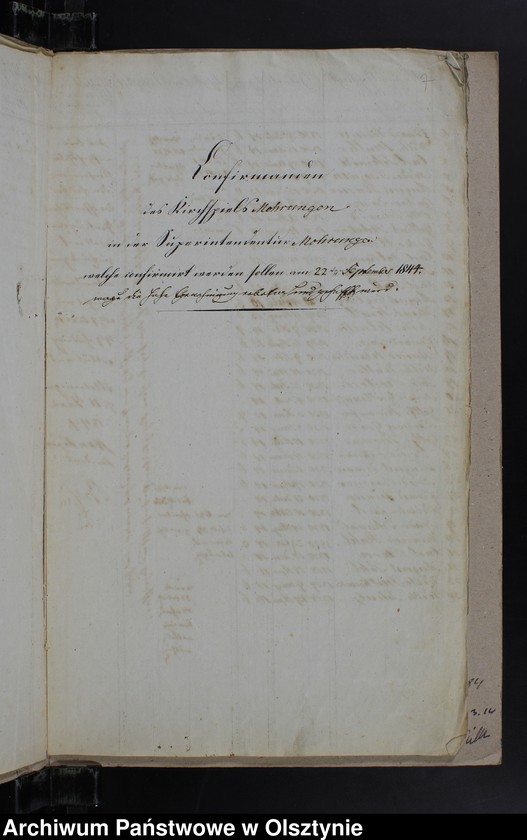 Confirmanden
des Kirchspiels Mohrungen
in der Superintendentur Mohrungen
welche confirmirt werden sollen am 22ten September 1844.
wozu die hohe Genehmigung erbeten wird.
84
3.16
Archiwum Państwowe w Olsztynie